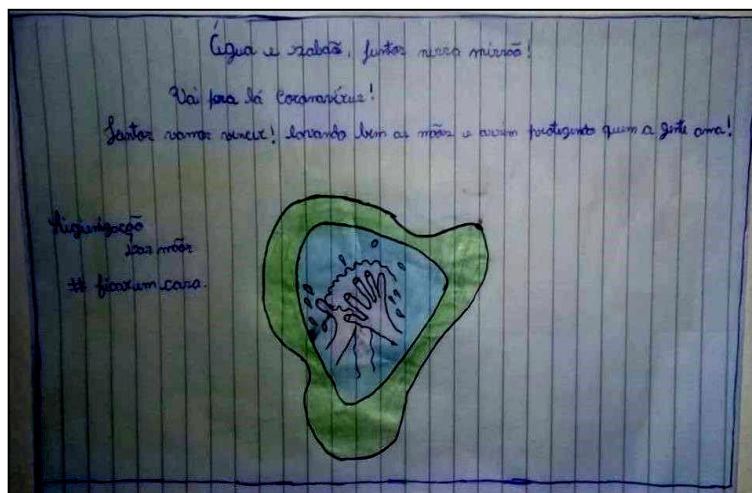 Água e sabão, juntos nessa missão!
Vai pra lá Coronavírus!
Juntos vamos vencer! lavando bem as mãos e assim protegendo quem a gente ama!
Higienização
das mãos
# ficaremcasa.